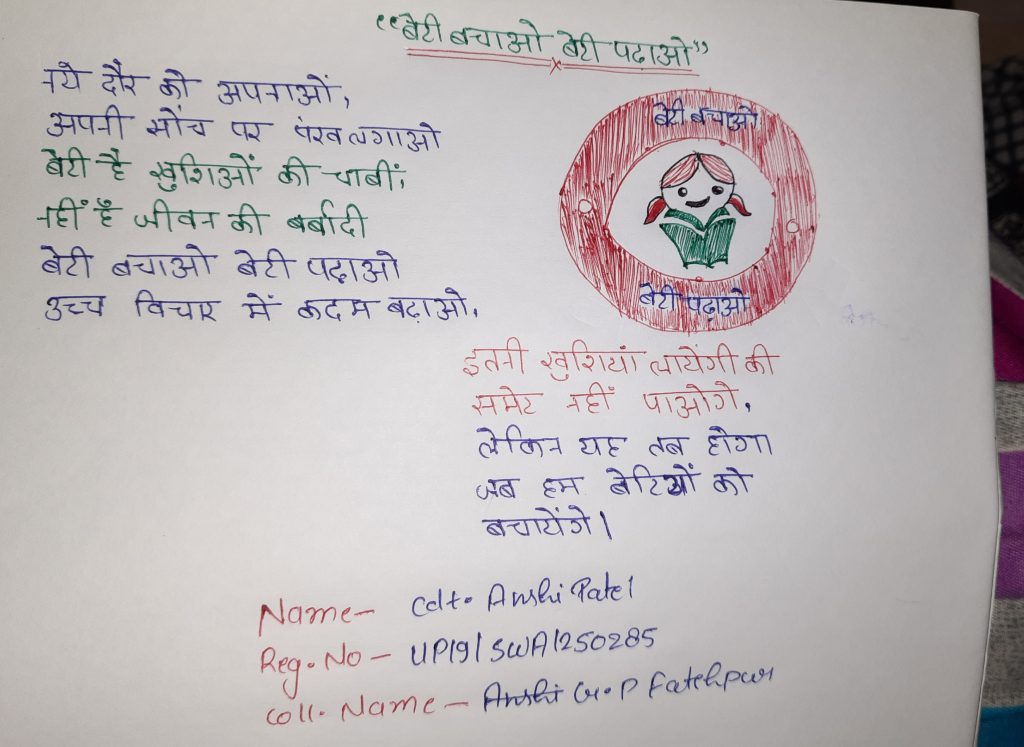 “बेटी बचाओ बेटी पढ़ाओ”
नये दौर को अपनाओं,
अपनी सोंच पर पंख लगाओ
बेटी है खुशिओं की चाबीं,
नहीं हैं जीवन की बर्बादी
बेटी बचाओ बेटी पढ़ाओ
उच्च विचार में कदम बढ़ाओ,
बेटी बचाओ
बेटी पढ़ाओ
इतनी खुशियां लायेंगी की
समेट नहीं पाओगे,
लेकिन यह तब होगा
जब हम बेटियों को
बचायेंगे।
Name- Cdt. Anshi Patel
Reg. No - UP19/SWA/250285
Coll. Name - Anshi G.P Fatehpur